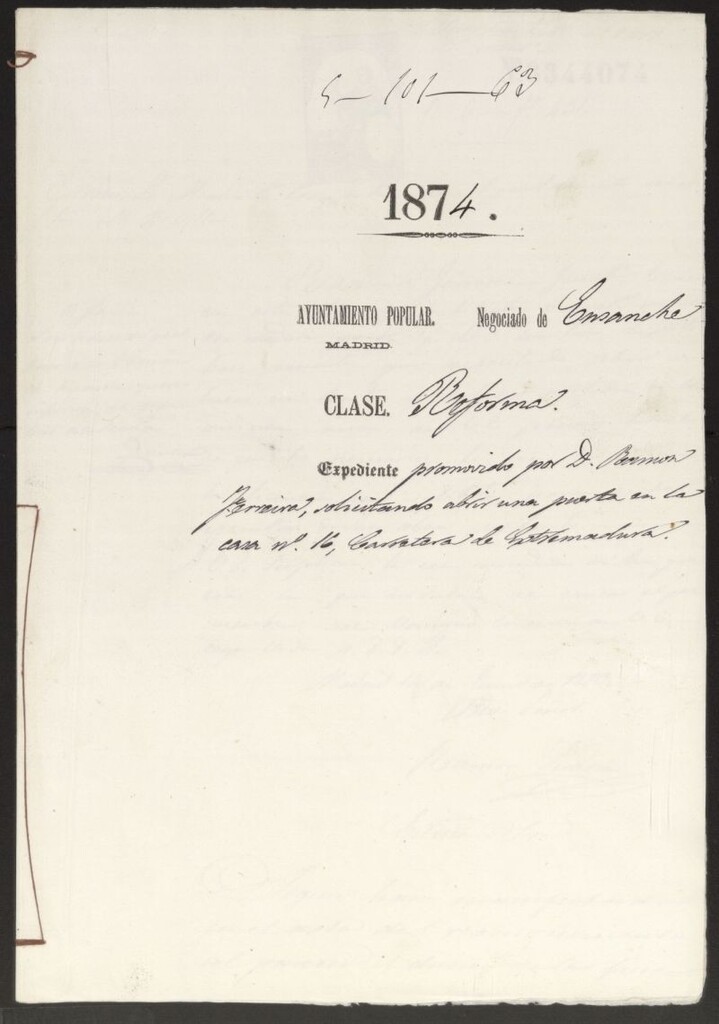 5-101-63
1874.
AYUNTAMIENTO POPULAR. Negociado de Ensanche
MADRID.
CLASE. Reforma.
Expediente promovido por D. Ramon
Ferreira, solicitando abrir una puerta en la
casa nº. 16, Carretera de Extremadura.